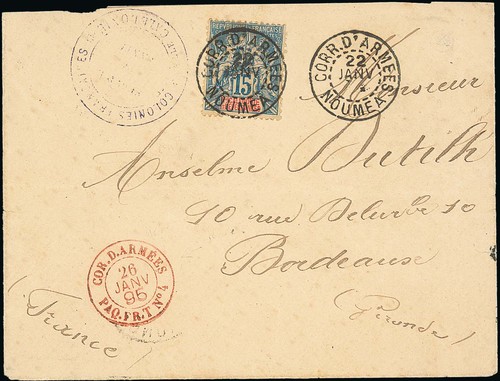 COLONIES FRANÇAISES
RÉPUBLIQUE FRANÇAISE
15
CORR. D'ARMÉES
22
NOUMEA
CORR. D'ARMÉES
22
JANV
NOUMEA
Monsieur
Anselme Dutilh
10 rue Delurbe 10
Bordeaux
(Gironde)
(France)
COR. D. ARMÉES
26
JANV
95
PAQ. FR. T Nº 4